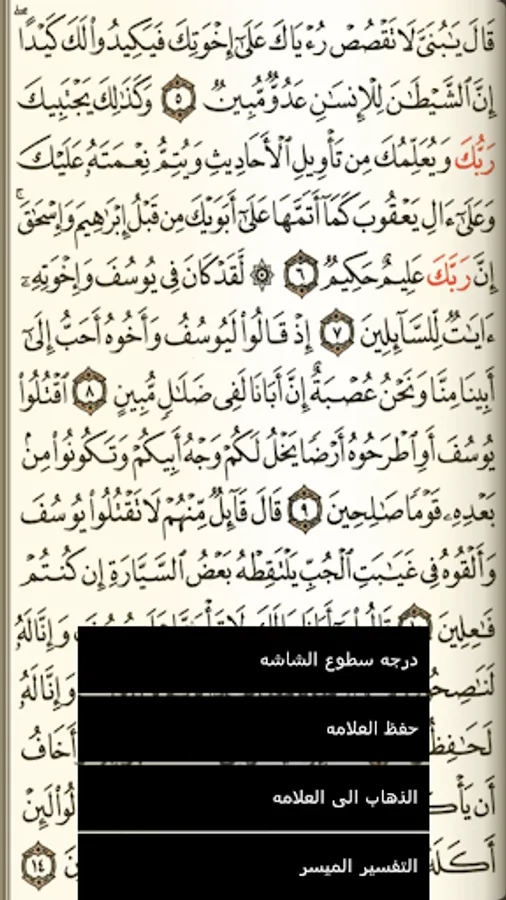 قَالَ يَـٰبُنَىَّ لَا تَقْصُصْ رُءْيَاكَ عَلَىٰٓ إِخْوَتِكَ فَيَكِيدُوا۟ لَكَ كَيْدًا
إِنَّ ٱلشَّيْطَـٰنَ لِلْإِنسَـٰنِ عَدُوٌّ مُّبِينٌ ٥ وَكَذَٰلِكَ يَجْتَبِيكَ
رَبُّكَ وَيُعَلِّمُكَ مِن تَأْوِيلِ ٱلْأَحَادِيثِ وَيُتِمُّ نِعْمَتَهُۥ عَلَيْكَ
وَعَلَىٰٓ ءَالِ يَعْقُوبَ كَمَآ أَتَمَّهَا عَلَىٰٓ أَبَوَيْكَ مِن قَبْلُ إِبْرَٰهِيمَ وَإِسْحَـٰقَ ۚ
إِنَّ رَبَّكَ عَلِيمٌ حَكِيمٌ ٦ ۞ لَّقَدْ كَانَ فِى يُوسُفَ وَإِخْوَتِهِۦٓ
ءَايَـٰتٌ لِّلسَّآئِلِينَ ٧ إِذْ قَالُوا۟ لَيُوسُفُ وَأَخُوهُ أَحَبُّ إِلَىٰٓ
أَبِينَا مِنَّا وَنَحْنُ عُصْبَةٌ إِنَّ أَبَانَا لَفِى ضَلَـٰلٍ مُّبِينٍ ٨ ٱقْتُلُوا۟
يُوسُفَ أَوِ ٱطْرَحُوهُ أَرْضًا يَخْلُ لَكُمْ وَجْهُ أَبِيكُمْ وَتَكُونُوا۟ مِنۢ
بَعْدِهِۦ قَوْمًا صَـٰلِحِينَ ٩ قَالَ قَآئِلٌ مِّنْهُمْ لَا تَقْتُلُوا۟ يُوسُفَ
وَأَلْقُوهُ فِى غَيَـٰبَتِ ٱلْجُبِّ يَلْتَقِطْهُ بَعْضُ ٱلسَّيَّارَةِ إِن كُنتُمْ
فَـٰعِلِينَ وَإِنَّا لَهُۥ
وَإِنَّا لَهُۥ
أَخَافُ
أَن
١٤
درجه سطوع الشاشه
حفظ العلامه
الذهاب الى العلامه
التفسير الميسر